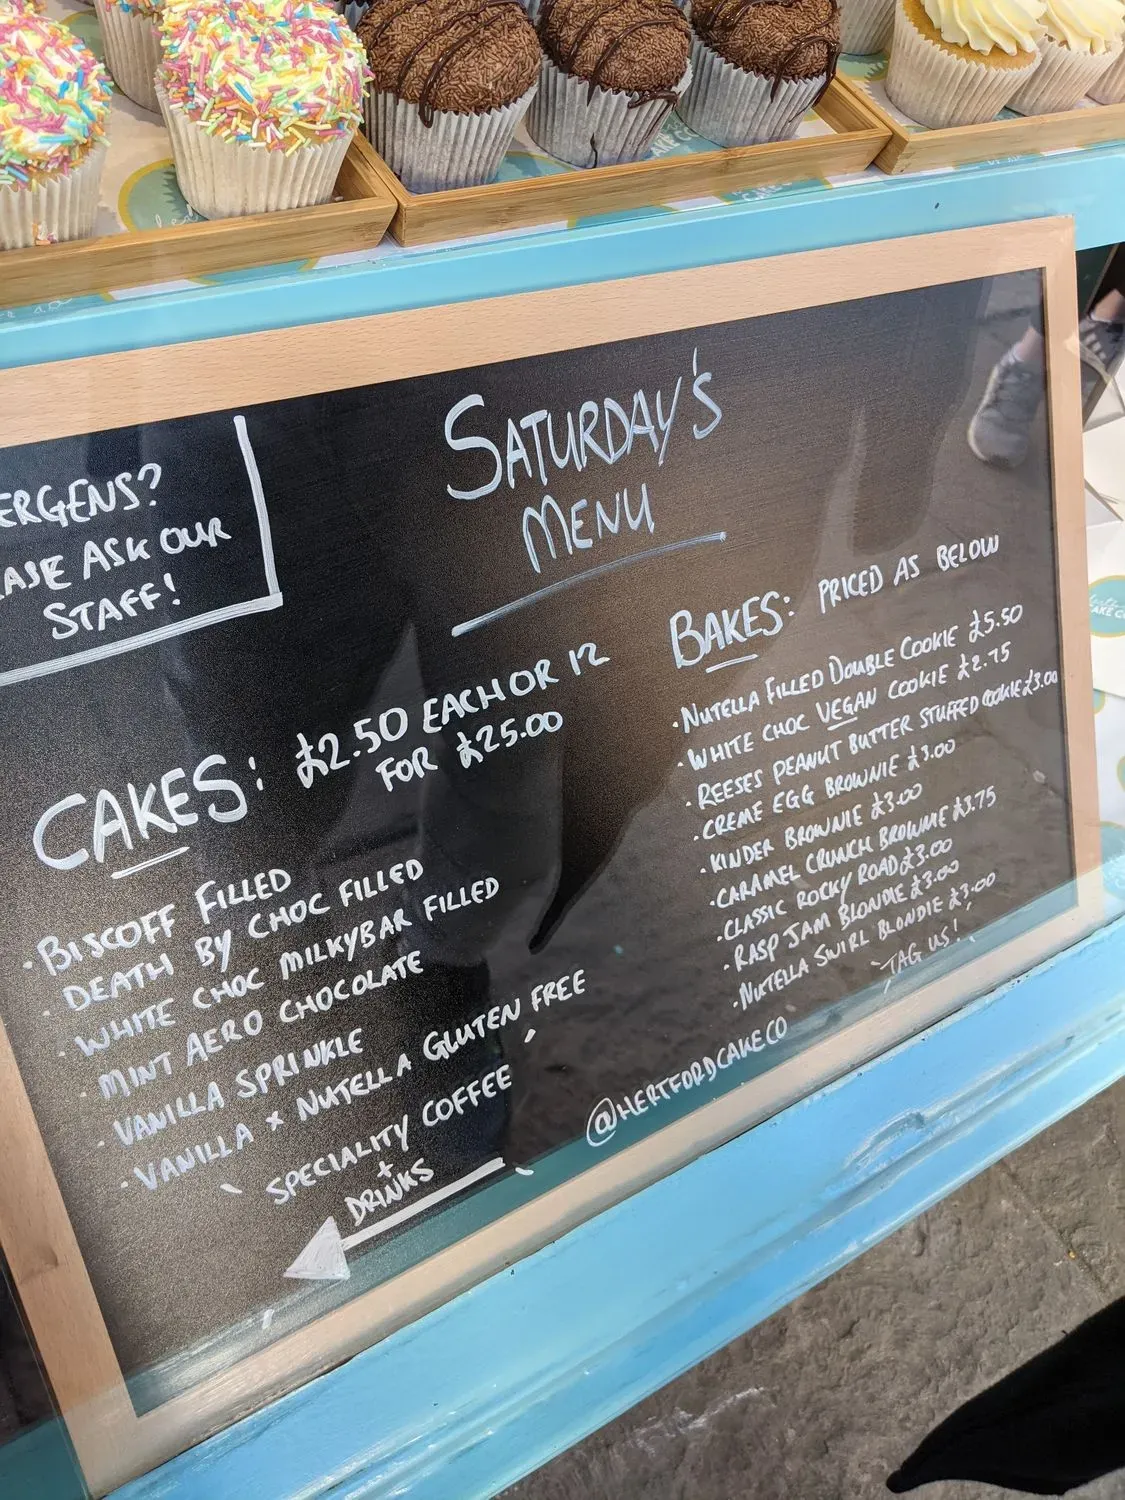 ERGENS?
ASE ASK OUR
STAFF!
SATURDAY'S
MENU
CAKES: £2.50 EACH OR 12
FOR £25.00
· BISCOFF FILLED
· DEATH BY CHOC FILLED
· WHITE CHOC MILKYBAR FILLED
· MINT AERO CHOCOLATE
· VANILLA SPRINKLE
· VANILLA + NUTELLA GLUTEN FREE
SPECIALITY COFFEE
+
DRINKS
BAKES: PRICED AS BELOW
· NUTELLA FILLED DOUBLE COOKIE £5.50
· WHITE CHOC VEGAN COOKIE £2.75
· REESES PEANUT BUTTER STUFFED COOKIE £3.00
· CREME EGG BROWNIE £3.00
· KINDER BROWNIE £3.00
· CARAMEL CRUNCH BROWNIE £3.75
· CLASSIC ROCKY ROAD £3.00
· RASP JAM BLONDIE £3.00
· NUTELLA SWIRL BLONDIE £3.00
TAG US!
@HERTFORDCAKECO
CAKE CO